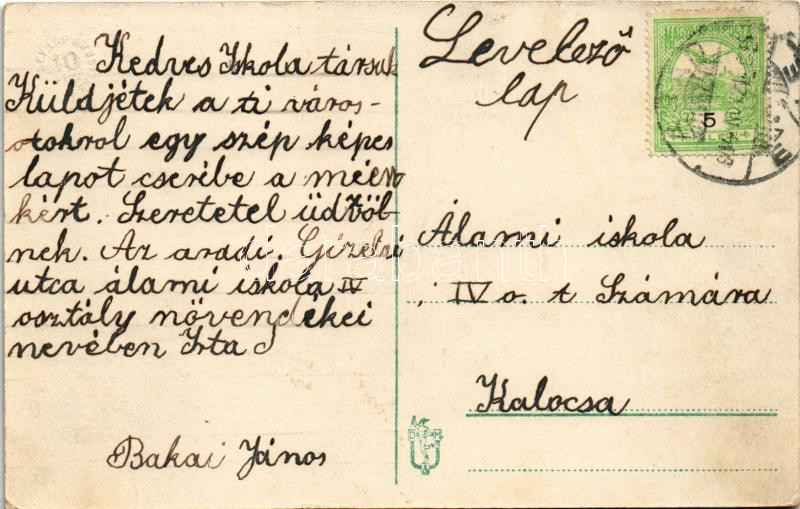 Kedves Iskola társak
Küldjétek a ti város-
otokrol egy szép képes
lapot cseribe a méén
kért. Szeretetel üdvöb-
nek. Az aradi. Gizelai
utca álami iskola IV
osztály növendékei
nevében Irta
Bakai János
Levelező
lap
MAGYAR KIR. POSTA
5
Álami iskola
IV o. t Számára
Kalocsa
darabanth